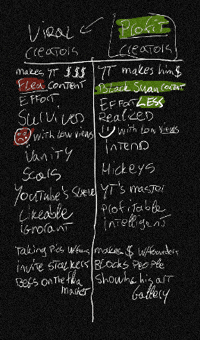 Viral
creators
Profit
creators
makes YT $$$
Flea content
Effort
Survived
with low views
Vanity
Scars
Likeable
ignorant
Taking Pics w/fans
invite stalkers
Begs on the flea
market
YT makes him $
Black Swan content
Effortless
Realized
with low views
intend
Mickeys
YT's master
profitable
intelligent
makes $ w/founders
Blocks people
Show his art
Gallery